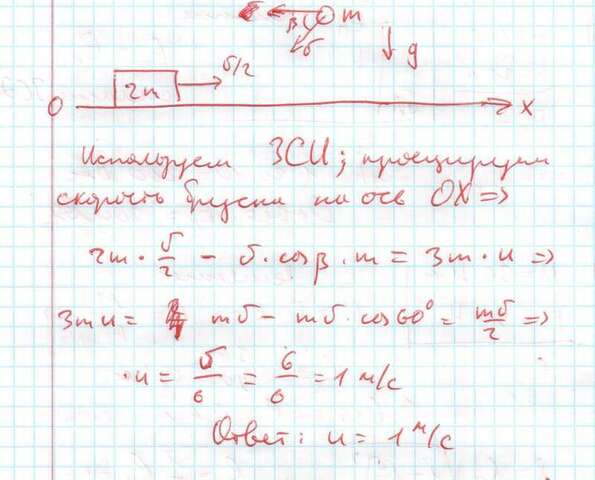 m
β
υ
g
υ/2
2m
O
x
Используем ЗСИ; проецируем
скорость бруска на ось OX =>
2m · υ/2 - υ · cosβ · m = 3m · u =>
3mu = mυ - mυ · cos60° = mυ/2 =>
· u = υ/6 = 6/6 = 1 м/с
Ответ: u = 1 м/с